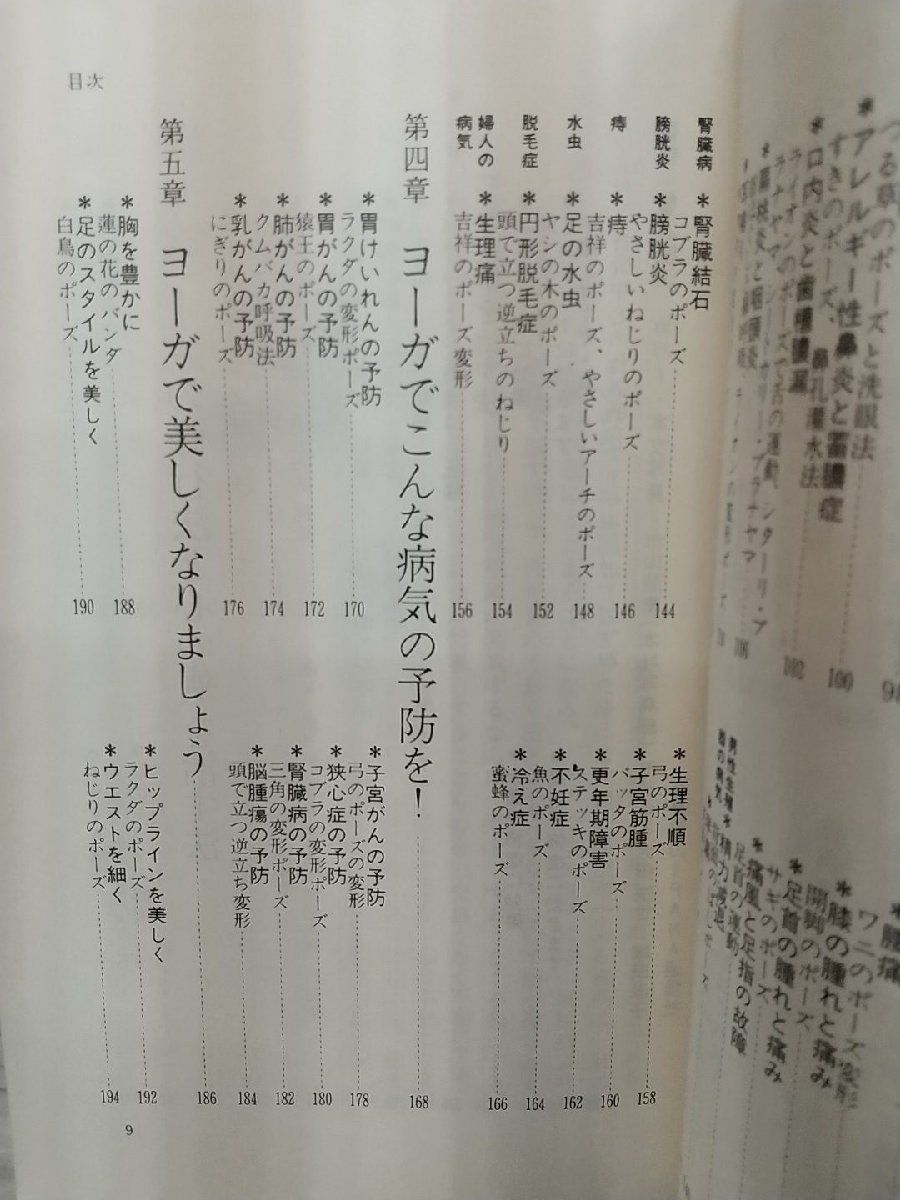 つる草のポーズと洗眼法
＊アレルギー性鼻炎と蓄膿症
すきのポーズ、鼻孔灌水法 100
＊口内炎と歯槽膿漏
102
＊腰痛
ワニのポーズ変形
＊膝の腫れと痛み
開脚のポーズ
＊足首の腫れと痛み
サギのポーズ
＊痛風と足指の故障
足首の運動
目次
腎臓病 ＊腎臓結石
コブラのポーズ 144
膀胱炎 ＊膀胱炎
やさしいねじりのポーズ 146
痔 ＊痔
吉祥のポーズ、やさしいアーチのポーズ 148
水虫 ＊足の水虫
ヤシの木のポーズ 152
脱毛症 ＊円形脱毛症
頭で立つ逆立ちのねじり 154
婦人の病気 ＊生理痛
吉祥のポーズ変形 156
＊生理不順
弓のポーズ 158
＊子宮筋腫
バッタのポーズ 160
＊更年期障害
ステッキのポーズ 162
＊不妊症
魚のポーズ 164
＊冷え症
蜜蜂のポーズ 166
第四章 ヨーガでこんな病気の予防を！ 168
＊胃けいれんの予防
ラクダの変形ポーズ 170
＊胃がんの予防
猿王のポーズ 172
＊肺がんの予防
クムバカ呼吸法 174
＊乳がんの予防
にぎりのポーズ 176
＊子宮がんの予防
弓のポーズの変形 178
＊狭心症の予防
コブラの変形ポーズ 180
＊腎臓病の予防
三角の変形ポーズ 182
＊脳腫瘍の予防
頭で立つ逆立ち変形 184
第五章 ヨーガで美しくなりましょう 186
＊胸を豊かに
蓮の花のバンダ 188
＊足のスタイルを美しく
白鳥のポーズ 190
＊ヒップラインを美しく
ラクダのポーズ 192
＊ウエストを細く
ねじりのポーズ 194
9